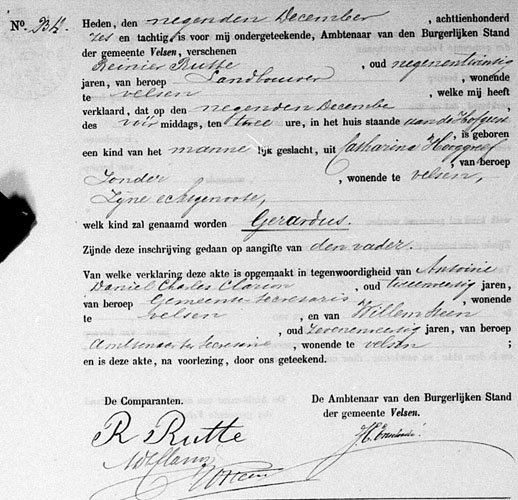 No. 234. Heden, den negenden December, achttienhonderd
zes en tachtig is voor mij ondergeteekende, Ambtenaar van den Burgerlijken Stand
der gemeente Velsen, verschenen
Reinier Rutte, oud negenentwintig
jaren, van beroep Landbouwer, wonende
te velsen, welke mij heeft
verklaard, dat op den negenden Decembe
des voormiddags, ten twee ure, in het huis staande aan de
, is geboren
een kind van het mannelijk geslacht, uit Catharina Hooggreef
, van beroep
Zonder, wonende te velsen,
Zijne echtgenoote,
welk kind zal genaamd worden Gerardus.
Zijnde deze inschrijving gedaan op aangifte van den vader.
Van welke verklaring deze akte is opgemaakt in tegenwoordigheid van Antoine
Daniel Charles, oud jaren,
van beroep Gemeente-Secretaris, wonende
te velsen, en van Willem Steen
, oud Zevenenveertig jaren, van beroep
Amtenaar ter Secretarie, wonende te velsen;
en is deze akte, na voorlezing, door ons geteekend.
De Comparanten. De Ambtenaar van den Burgerlijken Stand
der gemeente Velsen.
R Rutte